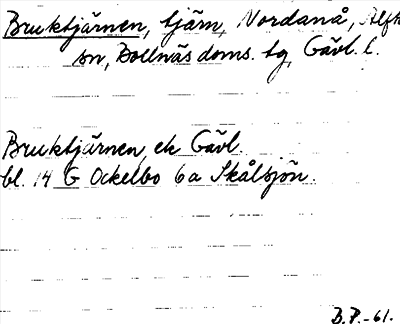 Bruktjärnen, tjärn, Nordanå, Alfta
sn, Bollnäs doms. tg, Gävl. l.
Bruktjärnen ek Gävl.
bl. 14 G Ockelbo 6a Skålsjön.
B.P.-61.